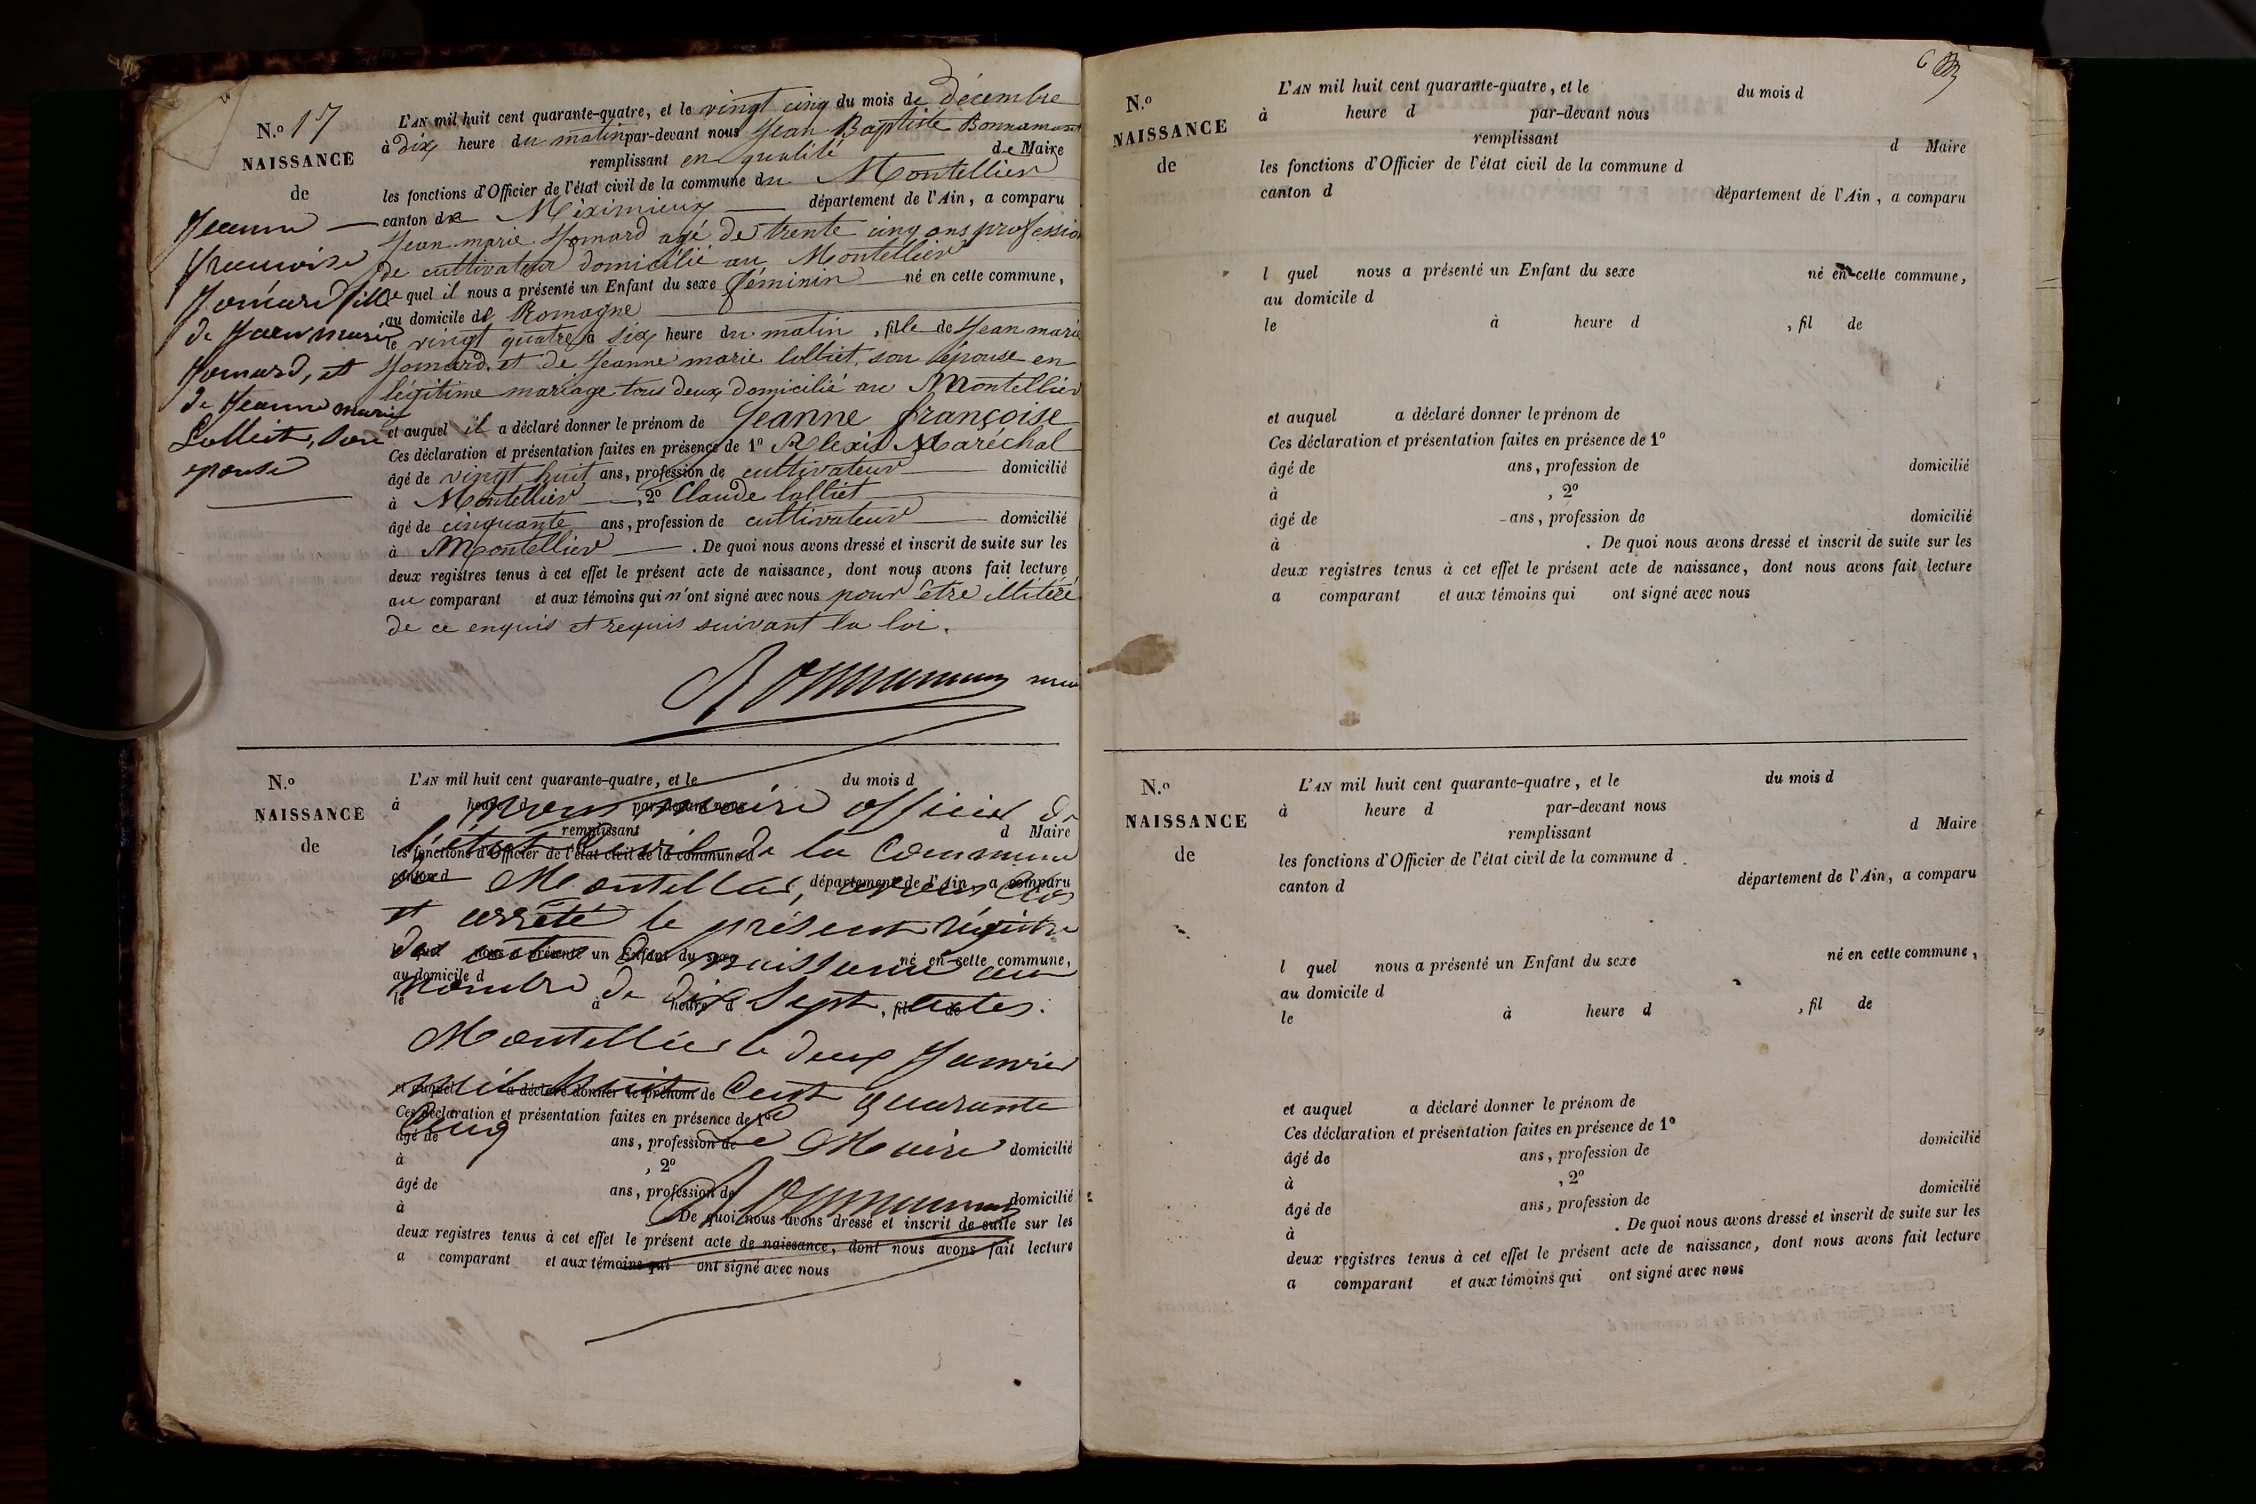 N.º 17
NAISSANCE
de
Jeanne
françoise
Jomard fille
de Jean marie
Jomard, et
de Jeanne marie
Lolliet, son
épouse
L'AN mil huit cent quarante-quatre, et le vingt cinq du mois de décembre
à dix heure du matin par-devant nous Jean Baptiste Bonnamour
remplissant en qualité de Maire
les fonctions d'Officier de l'état civil de la commune du Montellier
canton de Méximieux département de l'Ain, a comparu
Jean marie Jomard agé de trente cinq ans profession
de cultivateur domicilié au Montellier
le quel il nous a présenté un Enfant du sexe féminin né en cette commune,
au domicile de Romagne
le vingt quatre à six heure du matin, fille de Jean marie
Jomard, et de Jeanne marie lolliet, son épouse en
légitime mariage tous deux domicilié au Montellier
et auquel il a déclaré donner le prénom de Jeanne françoise
Ces déclaration et présentation faites en présence de 1º Alexis Maréchal
âgé de vingt huit ans, profession de cultivateur domicilié
à Montellier, 2º Claude lolliet
âgé de cinquante ans, profession de cultivateur domicilié
à Montellier. De quoi nous avons dressé et inscrit de suite sur les
deux registres tenus à cet effet le présent acte de naissance, dont nous avons fait lecture
au comparant et aux témoins qui n'ont signé avec nous pour être illitéré
de ce enquis et requis suivant la loi.
Bonnamour
N.º
NAISSANCE
de
L'AN mil huit cent quarante-quatre, et le du mois d
à heure d par-devant nous
Nous maire officier de
remplissant d Maire
l'état Civil de la Commune
les fonctions d'Officier de l'état civil de la commune d
canton d département de l'Ain, a comparu
du Montellier, avons clos
et arrêté le présent régistre
des actes de naissance au
l quel nous a présenté un Enfant du sexe né en cette commune,
au domicile d
nombre de dix Sept actes.
le à heure d , fil de
Montellier le deux Janvier
mil huit Cent quarante
et auquel a déclaré donner le prénom de
Ces déclaration et présentation faites en présence de 1º
Cinq
âgé de ans, profession de domicilié
Le Maire
à , 2º
âgé de ans, profession de domicilié
Bonnamour
à . De quoi nous avons dressé et inscrit de suite sur les
deux registres tenus à cet effet le présent acte de naissance, dont nous avons fait lecture
a comparant et aux témoins qui ont signé avec nous
N.º
NAISSANCE
de
L'AN mil huit cent quarante-quatre, et le du mois d
à heure d par-devant nous
remplissant d Maire
les fonctions d'Officier de l'état civil de la commune d
canton d département de l'Ain, a comparu
l quel nous a présenté un Enfant du sexe né en cette commune,
au domicile d
le à heure d , fil de
et auquel a déclaré donner le prénom de
Ces déclaration et présentation faites en présence de 1º
âgé de ans, profession de domicilié
à , 2º
âgé de ans, profession de domicilié
à . De quoi nous avons dressé et inscrit de suite sur les
deux registres tenus à cet effet le présent acte de naissance, dont nous avons fait lecture
a comparant et aux témoins qui ont signé avec nous
N.º
NAISSANCE
de
L'AN mil huit cent quarante-quatre, et le du mois d
à heure d par-devant nous
remplissant d Maire
les fonctions d'Officier de l'état civil de la commune d
canton d département de l'Ain, a comparu
l quel nous a présenté un Enfant du sexe né en cette commune,
au domicile d
le à heure d , fil de
et auquel a déclaré donner le prénom de
Ces déclaration et présentation faites en présence de 1º
âgé de ans, profession de domicilié
à , 2º
âgé de ans, profession de domicilié
à . De quoi nous avons dressé et inscrit de suite sur les
deux registres tenus à cet effet le présent acte de naissance, dont nous avons fait lecture
a comparant et aux témoins qui ont signé avec nous